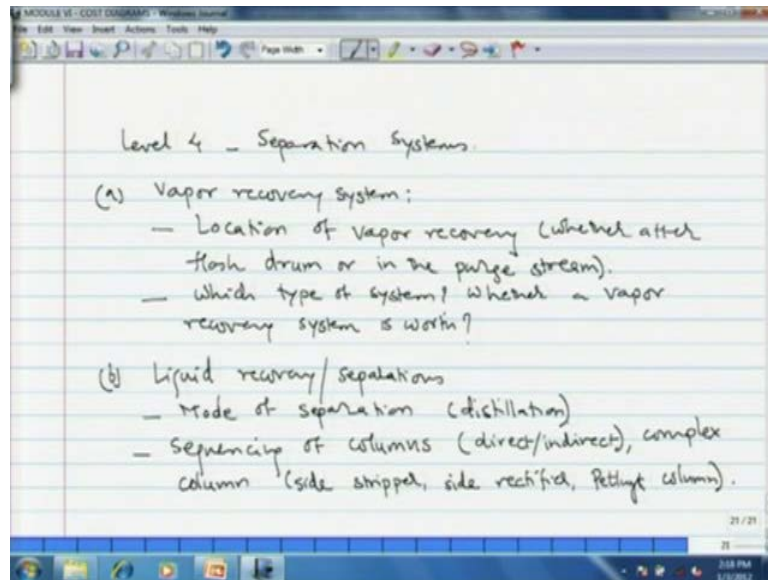 MODULE VI - COST DIAGRAMS - Windows Journal
File Edit View Insert Actions Tools Help
Page Width
Level 4 - Separation Systems.
(a) Vapor recovery system:
- Location of vapor recovery (whether after
flash drum or in the purge stream).
- Which type of system? Whether a vapor
recovery system is worth?
(b) Liquid recovery/separations
- Mode of separation (distillation)
- Sequencing of columns (direct/indirect), complex
column (side stripper, side rectifier, Petlyuk column).
21 / 21
21
2:18 PM
1/2/2012